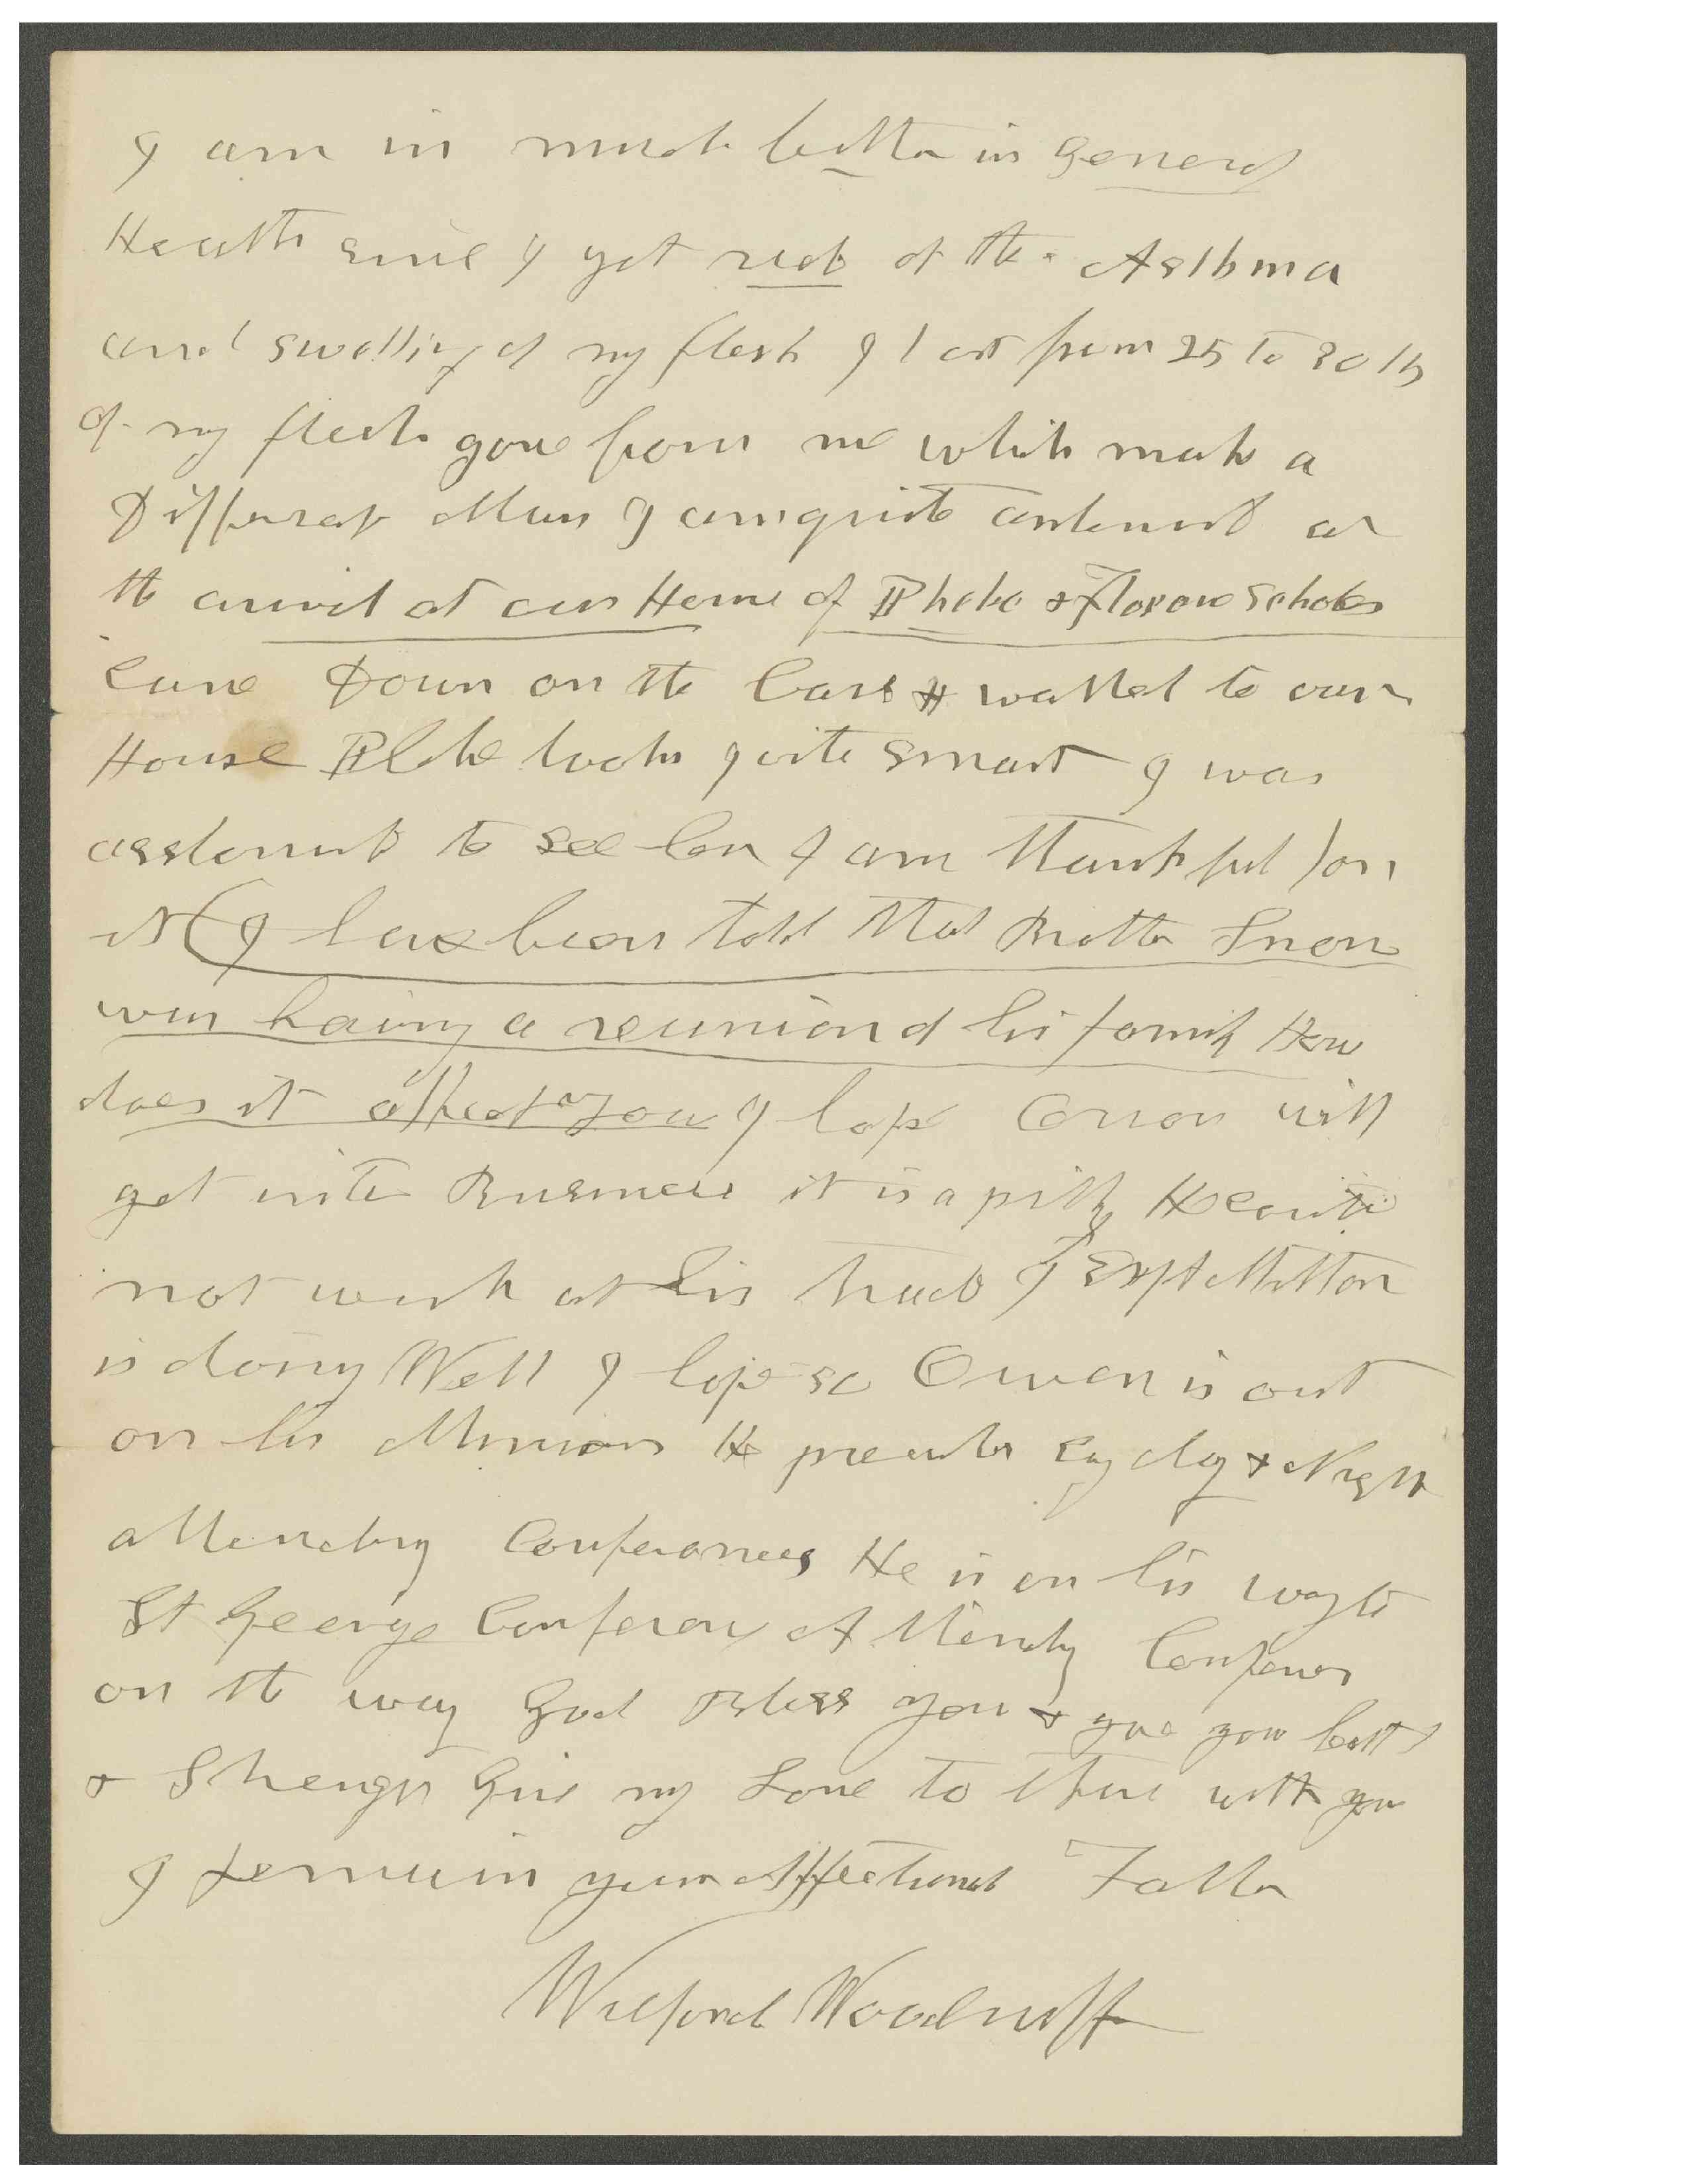 I am in much better in General
Health since I got rid of the Asthma
and swelling of my flesh I lost from 25 to 30 lb
of my flesh gone from me which make a
Different Man I am quite
the arivel at our Home of Phebe & Scholes
Came Down on the Cars & walked to our
House Phebe looks quite Smart I was
to see her I am thankful for
it (I have been told that Brother Snow
was having a reunion of his family How
does it affect you I hope will
get into Business it is a pitty He
not work at his trade I Expt
is doing Well I hope so Owen is out
on his Mission He preaches Evry day & Night
attending Conferences He is on his way to
St George Conferenc Attending Conferenc
on the way God Bless you & give you
& Strength Give my Love to with you
I remain your Affectionat Father
Wilford Woodruff